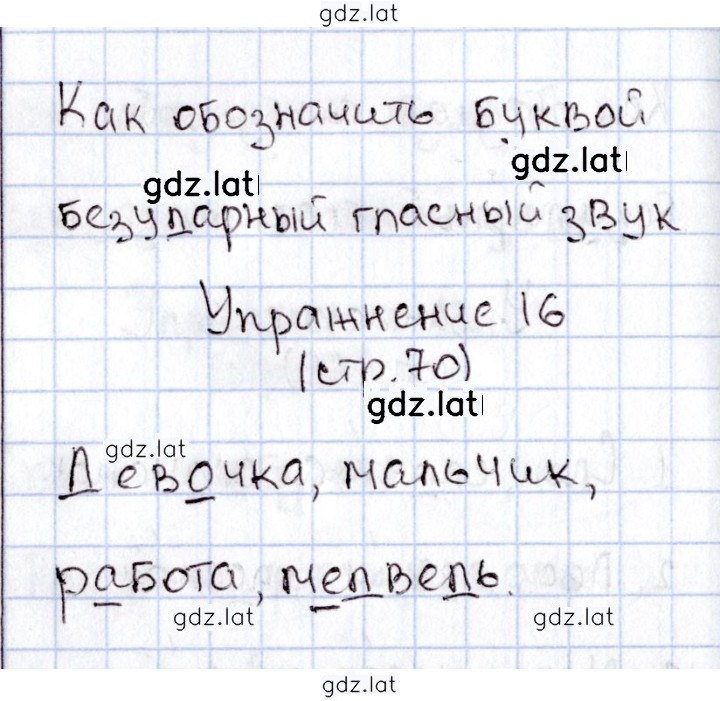 gdz.lat
Как обозначить буквой
gdz.lat
gdz.lat
безударный гласный звук
Упражнение 16
(стр. 70)
gdz.lat
gdz.lat
Девочка, мальчик,
работа, медведь.
gdz.lat gdz.lat
gdz.lat